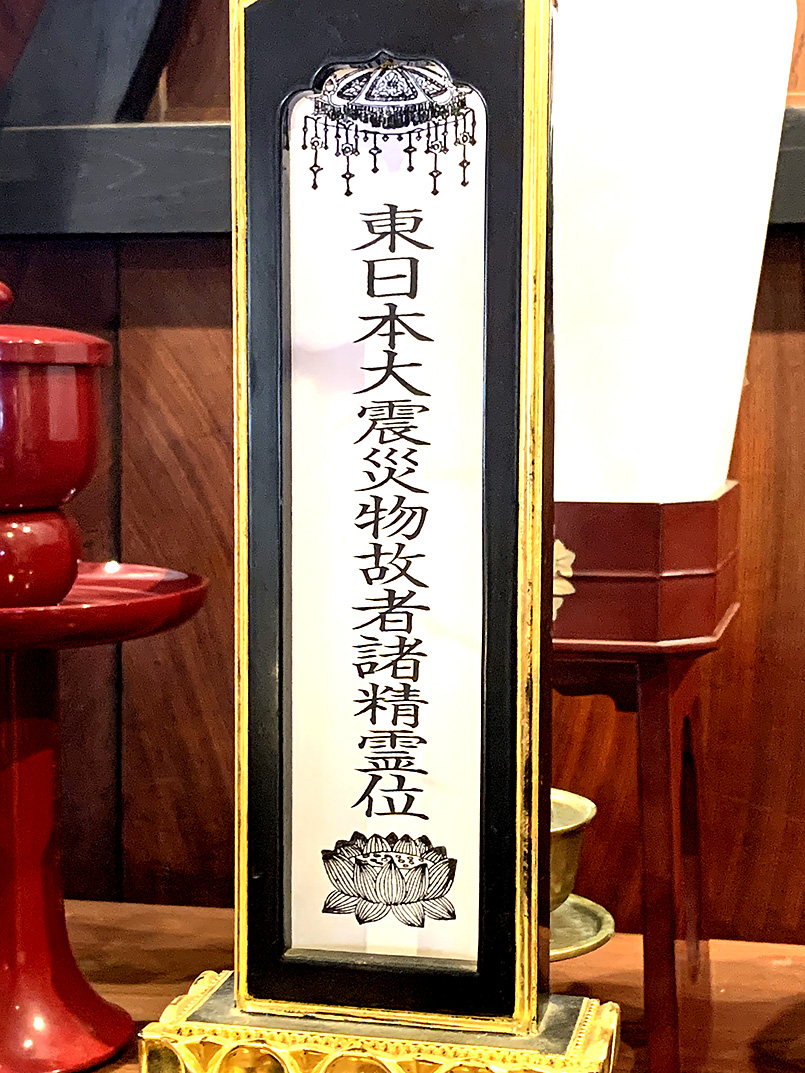 東日本大震災物故者諸精霊位